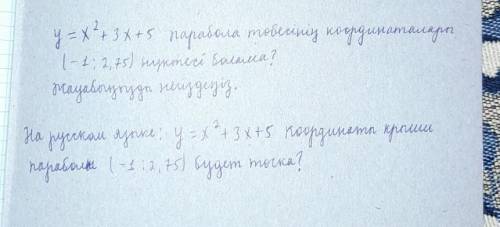 y = x² + 3x + 5 парабола төбесінің координаталары
(-1 ; 2,75) нүктесі болама?
Жауабыңызды негіздеңіз.
На русском языке: y = x² + 3x + 5 координаты крыши
параболы (-1 ; 2,75) будет точка?